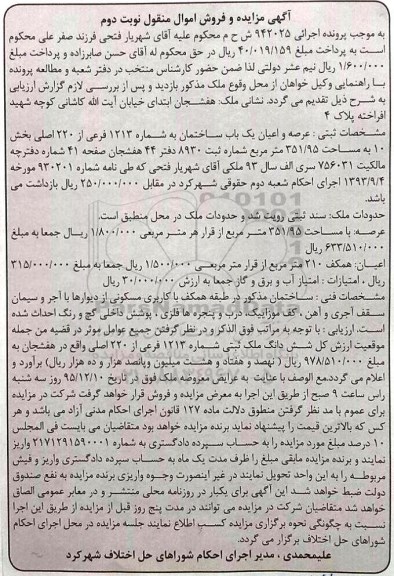 آگهی مزایده و فروش اموال منقول نوبت دوم
به موجب پرونده اجرائی ۹۴۲۰۲۵ ش ح م محکوم علیه آقای شهریار فتحی فرزند صفر علی محکوم
است به پرداخت مبلغ ۴۰/۰۱۹/۱۵۹ ریال در حق محکوم له آقای حسن صابرزاده و پرداخت مبلغ
۱/۶۰۰/۰۰۰ ریال نیم عشر دولتی لذا ضمن حضور کارشناس منتخب در دفتر شعبه و مطالعه پرونده
با راهنمایی وکیل خواهان از محل وقوع ملک مذکور بازدید و پس از بررسی لازم گزارش ارزیابی
به شرح ذیل تقدیم می گردد. نشانی ملک: هفشجان ابتدای خیابان آیت الله کاشانی کوچه شهید
افراخته پلاک ۴
مشخصات ثبتی : عرصه و اعیان یک باب ساختمان به شماره ۱۲۱۳ فرعی از ۲۲۰ اصلی بخش
۱۰ به مساحت ۳۵۱/۹۵ متر مربع شماره ثبت ۸۹۳۰ دفتر ۴۴ هفشجان صفحه ۴۱ شماره دفترچه
مالکیت ۷۵۶۰۳۱ سری الف سال ۹۳ ملکی آقای شهریار فتحی که طی نامه شماره ۹۳۰۲۰۱ مورخه
۱۳۹۳/۹/۴ اجرای احکام شعبه دوم حقوقی شهرکرد در مقابل ۲۵۰/۰۰۰/۰۰۰ ریال بازداشت می
باشد.
حدودات ملک: سند ثبتی رویت شد و حدودات ملک در محل منطبق است.
عرصه: با مساحت ۳۵۱/۹۵ متر مربع از قرار هر متر مربعی ۱/۸۰۰/۰۰۰ ریال جمعا به مبلغ
۶۳۳/۵۱۰/۰۰۰ ریال
اعیان: همکف ۲۱۰ متر مربع از قرار متر مربعی ۱/۵۰۰/۰۰۰ ریال جمعا به مبلغ ۳۱۵/۰۰۰/۰۰۰
ریال ، امتیازات : امتیاز آب و برق و گاز جمعا به ارزش ۳۰/۰۰۰/۰۰۰ ریال
مشخصات فنی : ساختمان مذکور در طبقه همکف با کاربری مسکونی از دیوارها با آجر و سیمان
سقف آجری و آهن ، کف موزاییک، درب و پنجره ها فلزی، پوشش داخلی گچ و رنگ احداث شده
است. ارزیابی : با توجه به مراتب فوق الذکر و در نظر گرفتن جمیع عوامل موثر در قضیه من جمله
موقعیت ارزش کل شش دانگ ملک ثبتی شماره ۱۲۱۳ فرعی از ۲۲۰ اصلی واقع در هفشجان به
مبلغ ۹۷۸/۵۱۰/۰۰۰ ریال ( نهصد و هفتاد و هشت میلیون وپانصد هزار و ده هزار ریال) برآورد و
اعلام می گردد.مع الوصف با عنایت به عرایض معروضه ملک فوق در تاریخ ۹۵/۱۲/۱۰ روز سه شنبه
راس ساعت ۹ صبح از طریق این اجرا به معرض مزایده و فروش قرار خواهد گرفت شرکت در مزایده
برای عموم با مد نظر گرفتن منطوق دلالت ماده ۱۲۷ قانون اجرای احکام مدنی آزاد می باشد و هر
کس که بالاترین قیمت را پیشنهاد نماید برنده مزایده خواهد بود متقاضیان می بایست فی المجلس
۱۰ درصد مبلغ مورد مزایده را به حساب سپرده دادگستری به شماره ۲۱۷۱۲۹۱۵۹۰۰۰۱ واریز
نمایند و برنده مزایده مابقی مبلغ را ظرف مدت یک ماه به حساب سپرده دادگستری واریز و فیش
مربوطه را به این واحد تحویل نمایند در غیر اینصورت وجوه واریزی برنده مزایده به نفع صندوق
دولت ضبط خواهد شد این آگهی برای یکبار در روزنامه محلی منتشر و در معابر عمومی الصاق
خواهد شد متقاضیان شرکت در مزایده می توانند در مدت پنج روز قبل از مزایده از طریق این اجرا
نسبت به چگونگی نحوه برگزاری مزایده کسب اطلاع نمایند جلسه مزایده در محل اجرای احکام
شوراهای حل اختلاف برگزار می گردد.
علیمحمدی ، مدیر اجرای احکام شوراهای حل اختلاف شهرکرد